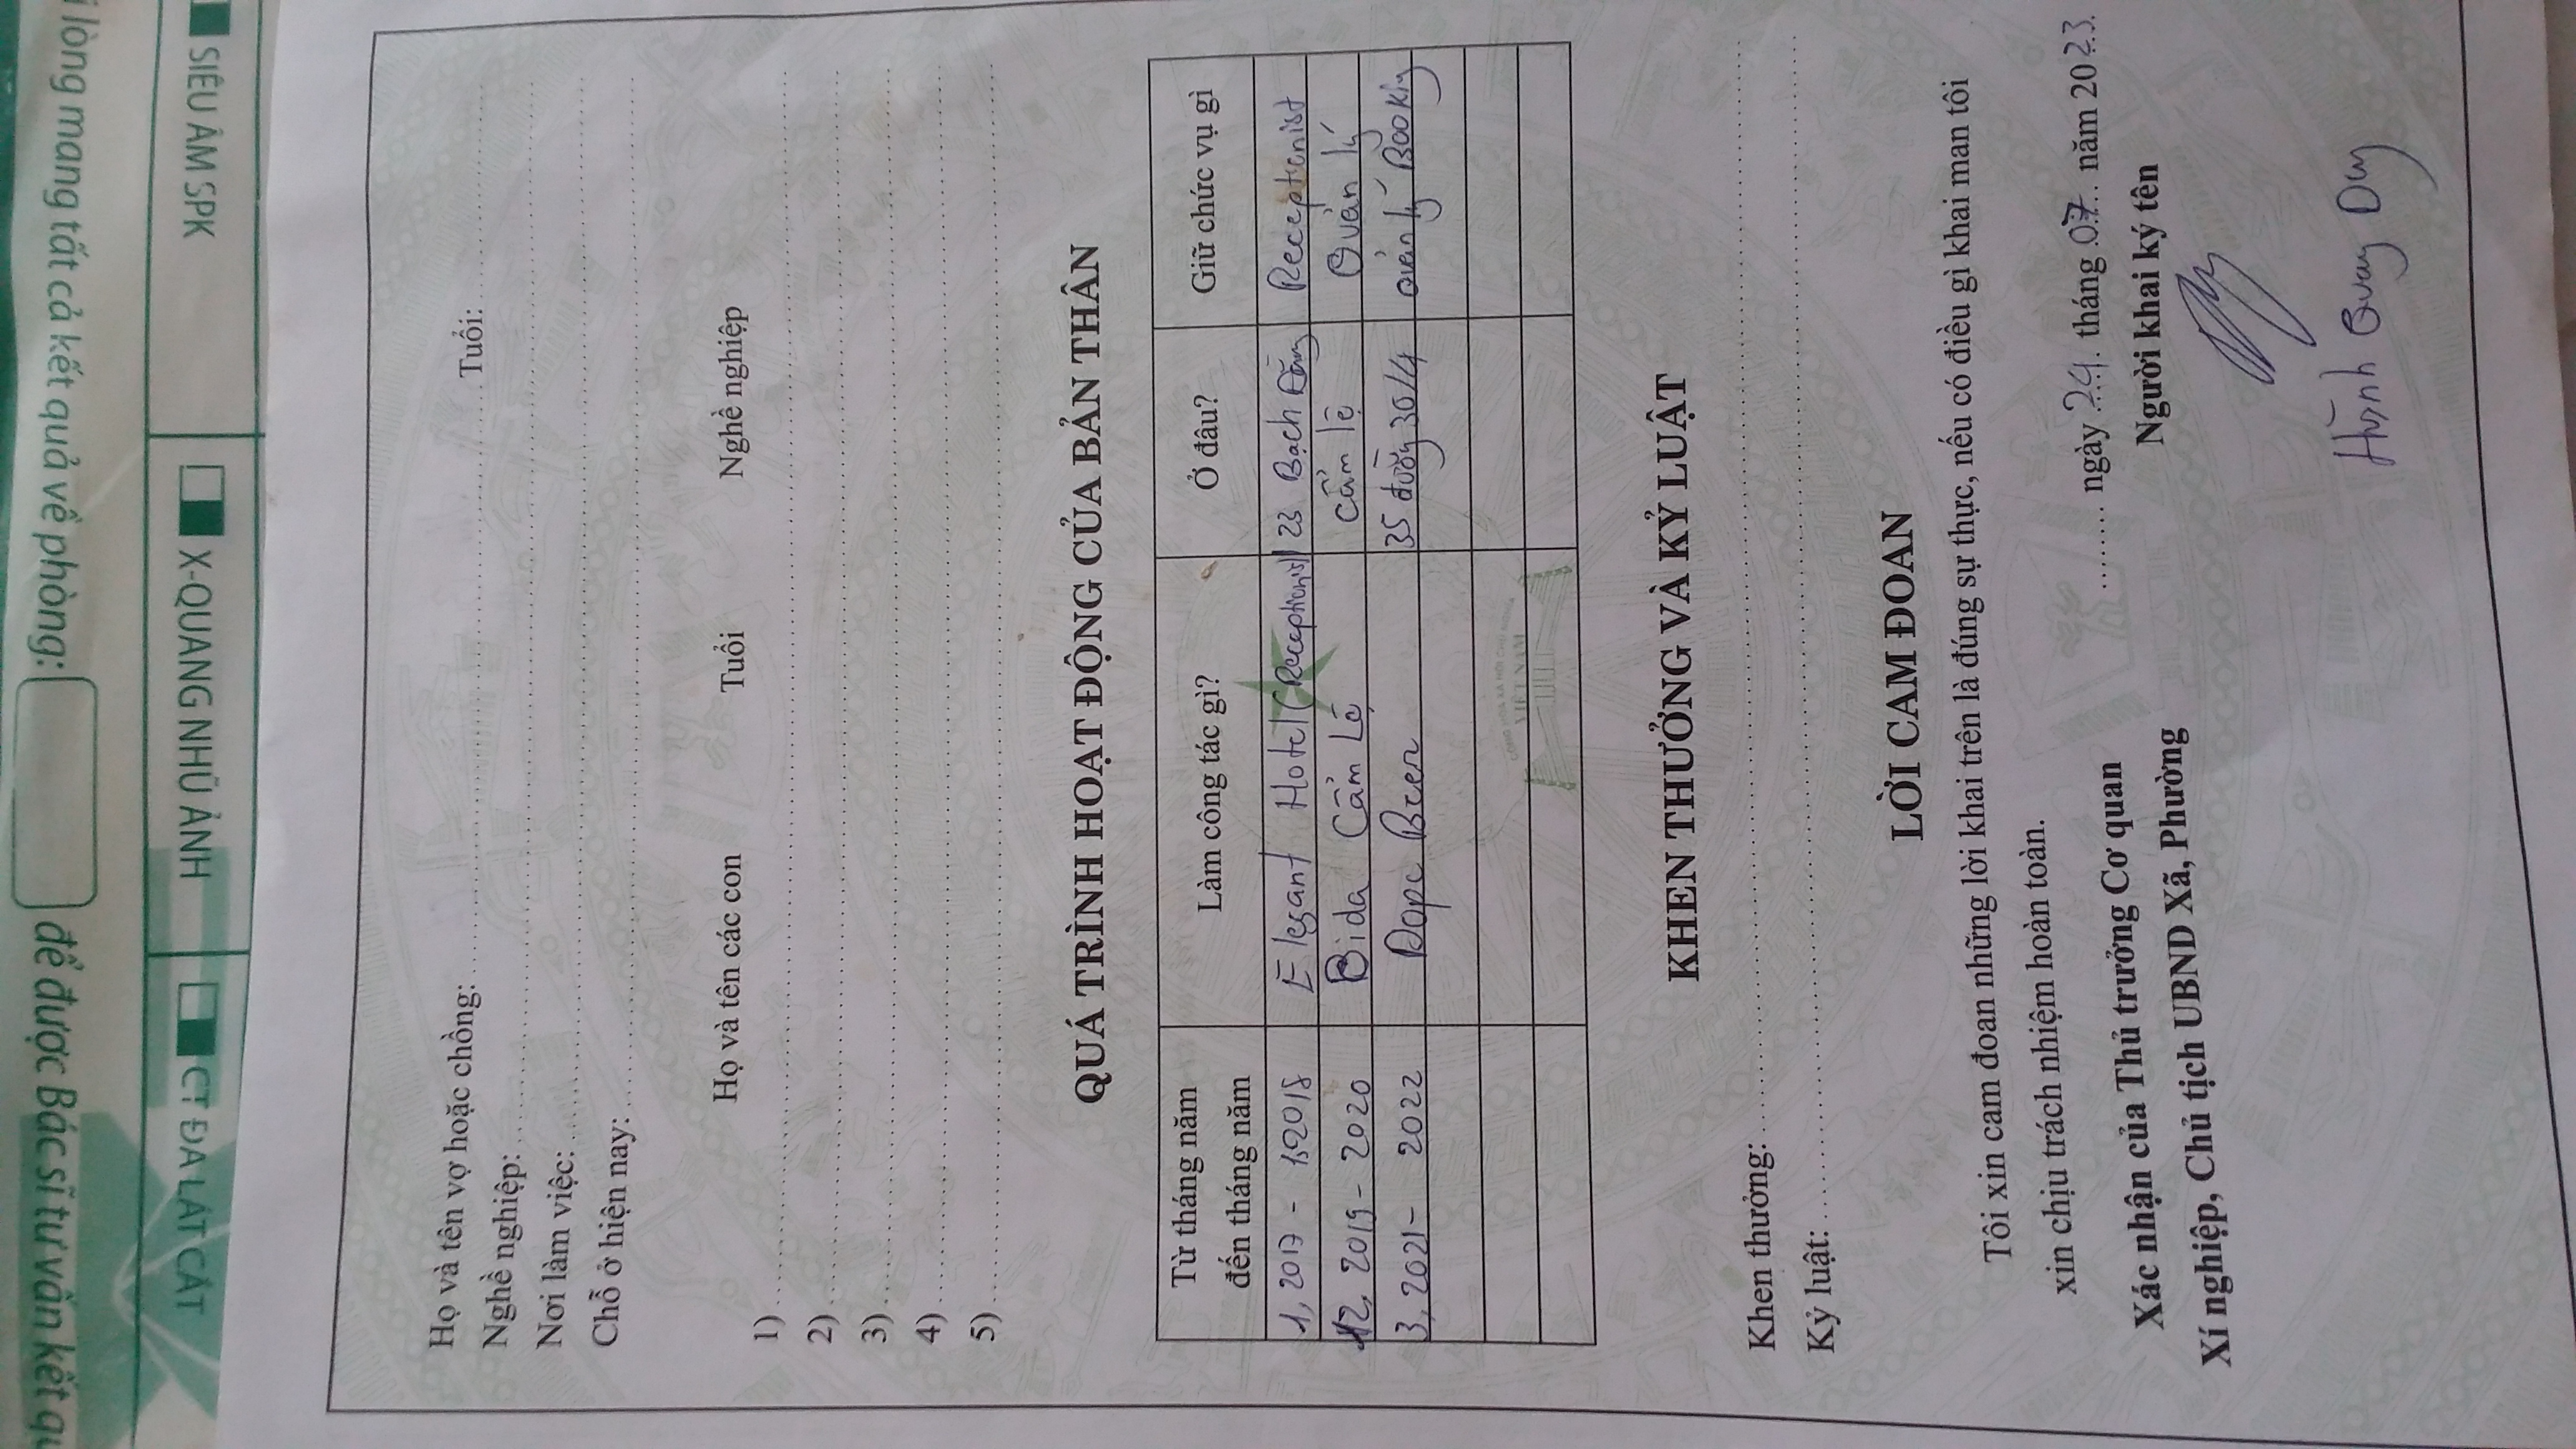 i lòng mang tất cả kết quả về phòng: để được Bác sĩ tư vấn kết qu
SIÊU ÂM SPK
X-QUANG NHŨ ẢNH
CT ĐA LÁT CẮT
Họ và tên vợ hoặc chồng: Tuổi:
Nghề nghiệp:
Nơi làm việc:
Chỗ ở hiện nay:
Họ và tên các con Tuổi Nghề nghiệp
1)
2)
3)
4)
5)
QUÁ TRÌNH HOẠT ĐỘNG CỦA BẢN THÂN
Từ tháng năm đến tháng năm Làm công tác gì? Ở đâu? Giữ chức vụ gì
1, 2017 - Elegant Hotel (Receptionist) 23 Bạch Đằng Receptionist
12, 2019 - 2020 Bida Cẩm Lệ Cẩm lệ Quản lý
3, 2021 - 2022 Dope Beer 35 đường 30/4 Quản lý Booking
CỘNG HÒA XÃ HỘI CHỦ NGHĨA
VIỆT NAM
KHEN THƯỞNG VÀ KỶ LUẬT
Khen thưởng:
Kỷ luật:
LỜI CAM ĐOAN
Tôi xin cam đoan những lời khai trên là đúng sự thực, nếu có điều gì khai man tôi
xin chịu trách nhiệm hoàn toàn.
ngày 24 tháng 07 năm 2023
Xác nhận của Thủ trưởng Cơ quan
Xí nghiệp, Chủ tịch UBND Xã, Phường
Người khai ký tên
Huỳnh Quang Duy